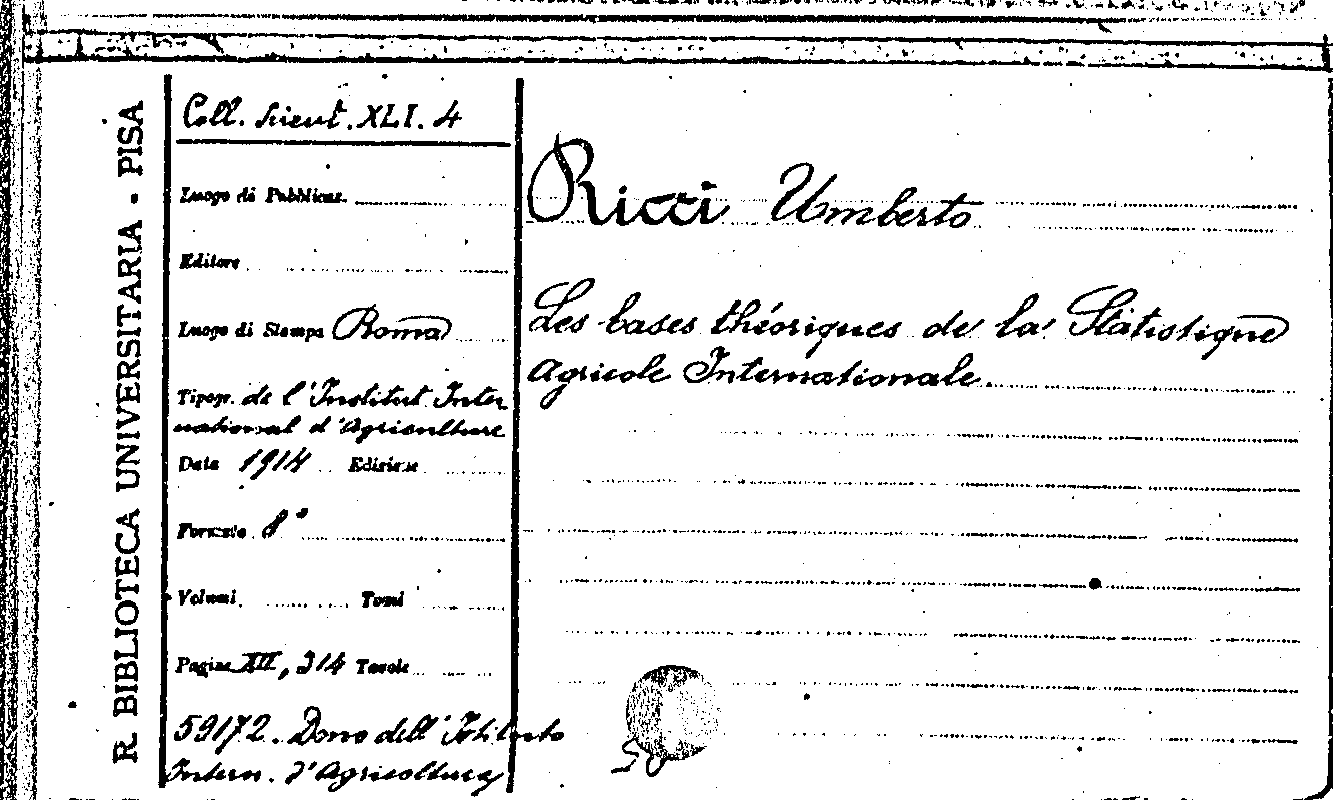 R. BIBLIOTECA UNIVERSITARIA - PISA
Coll. scient. XLI. 4
Luogo di Pubblicaz.
Editore
Luogo di Stampa Roma
Tipogr. de l'Institut Inter
national d'Agriculture
Data 1914 Edizione
Formato 8°
Volumi Tomi
Pagine XII, 314 Tavole
59172. Dono dell'Istituto
Intern. d'Agricoltura
Ricci Umberto
Les bases théoriques de la Statistique
Agricole Internationale.